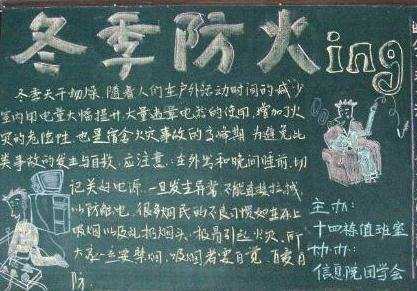 冬季防火ing
冬季天干物燥,随着人们在户外活动时间的减少
室内用电量大幅提升,大量电器的使用,增加了火
灾的危险性,也是宿舍火灾事故的高峰期,为避免此
类事故的发生与自救,应注意:在外出和晚间睡前,切
记关好电源,一旦发生异常,不能直接拉线
以防触电,很多烟民的不良习惯如在床上
吸烟以及乱扔烟头,极易引起火灾,所
大家一定要禁烟,吸烟者要自觉,
防.
主办:
十四栋值班室
协办:
信息院团学会